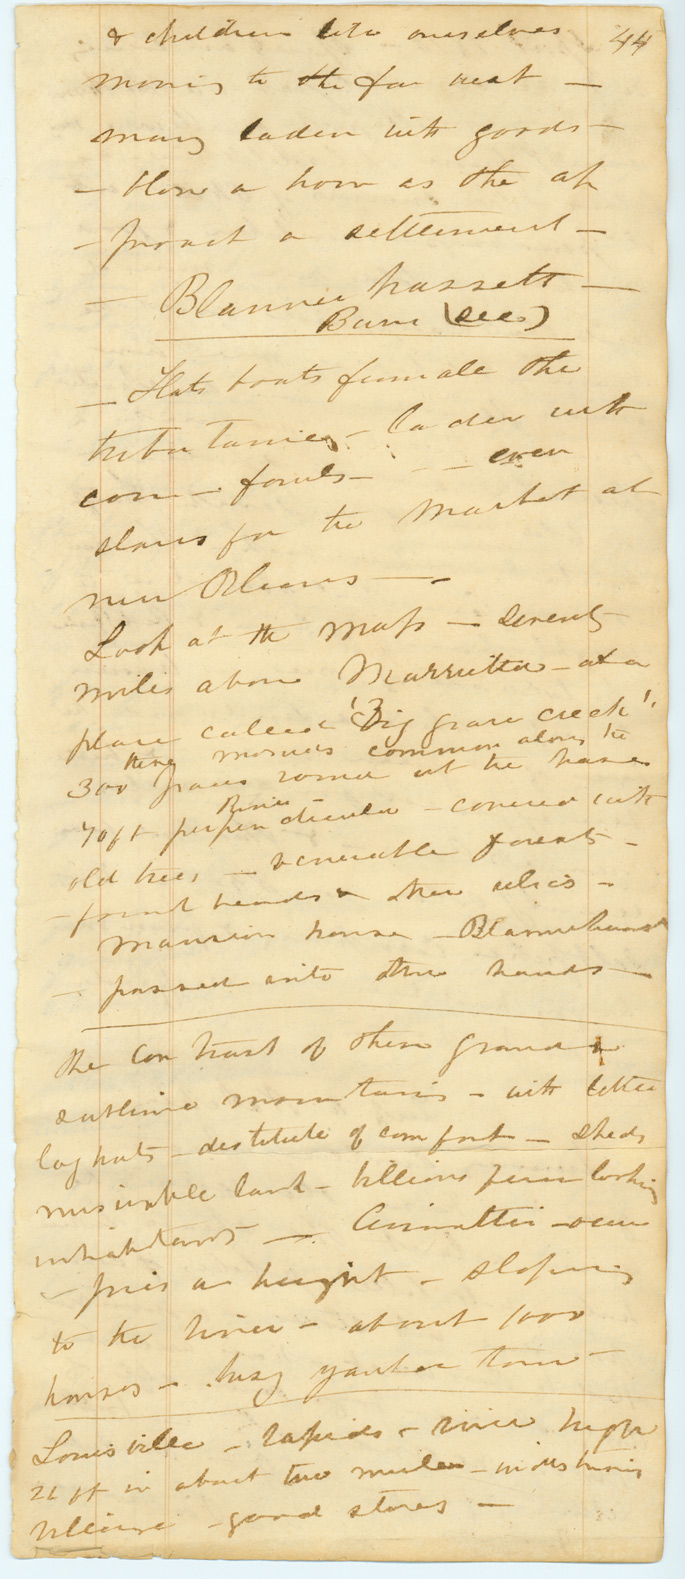 & children like ourselves 44
moving to the far west —
many laden with goods —
— blow a horn as the ap
— proach a settlement —
— Blannerhassett —
Burr (see)
— Flats boats from all the
tributaries — laden with
corn — fowls — — even
slaves for the market at
new Orleans — .
Look at the map — seventy
miles above Marrietta — at a
place called "Big grave creek".
there mounds common along the
300 paces round at the base
Rises
70 ft perpendicular — covered with
old trees — venerable forest —
— found beads & other relics —
mansion house — Blannerhassett
— passed into other hands —
The contrast of these grand &
sublime mountains — with little
log huts — destitute of comfort — sheds
miserable land — billious looking
inhabitants — . Cincinnatti —
— height — sloping
to the river — about 1000
houses — busy yankee town —
Louisville — rapids — river
21 ft in about two miles — industrious
— good stores —